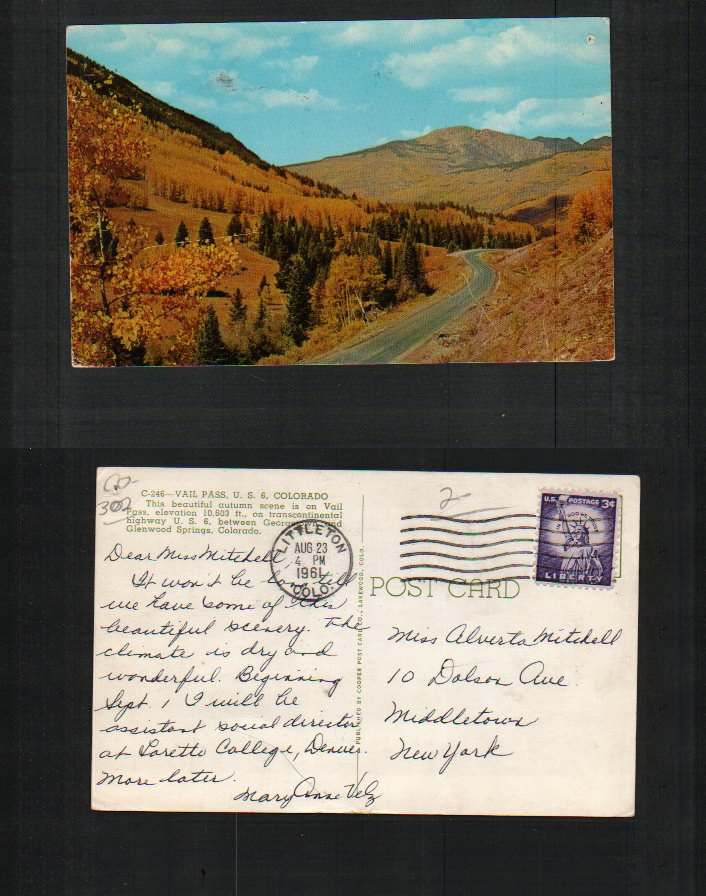 CO-
302
C-246—VAIL PASS, U. S. 6, COLORADO
This beautiful autumn scene is on Vail
Pass, elevation 10,603 ft., on transcontinental
highway U. S. 6, between Georgetown and
Glenwood Springs, Colorado.
Dear Miss Mitchell
It won't be long till
we have some of this
beautiful scenery. The
climate is dry and
wonderful. Beginning
Sept. 1 I will be
assistant social director
at Loretto College, Denver.
More later.
Mary Anne Velz
LITTLETON
AUG 23
4 PM
1961
COLO.
PUBLISHED BY COOPER POST CARD CO., LAKEWOOD, COLO.
2
U.S. POSTAGE 3¢
LIBERTY
POST CARD
Miss Alverta Mitchell
10 Dolson Ave.
Middletown
New York